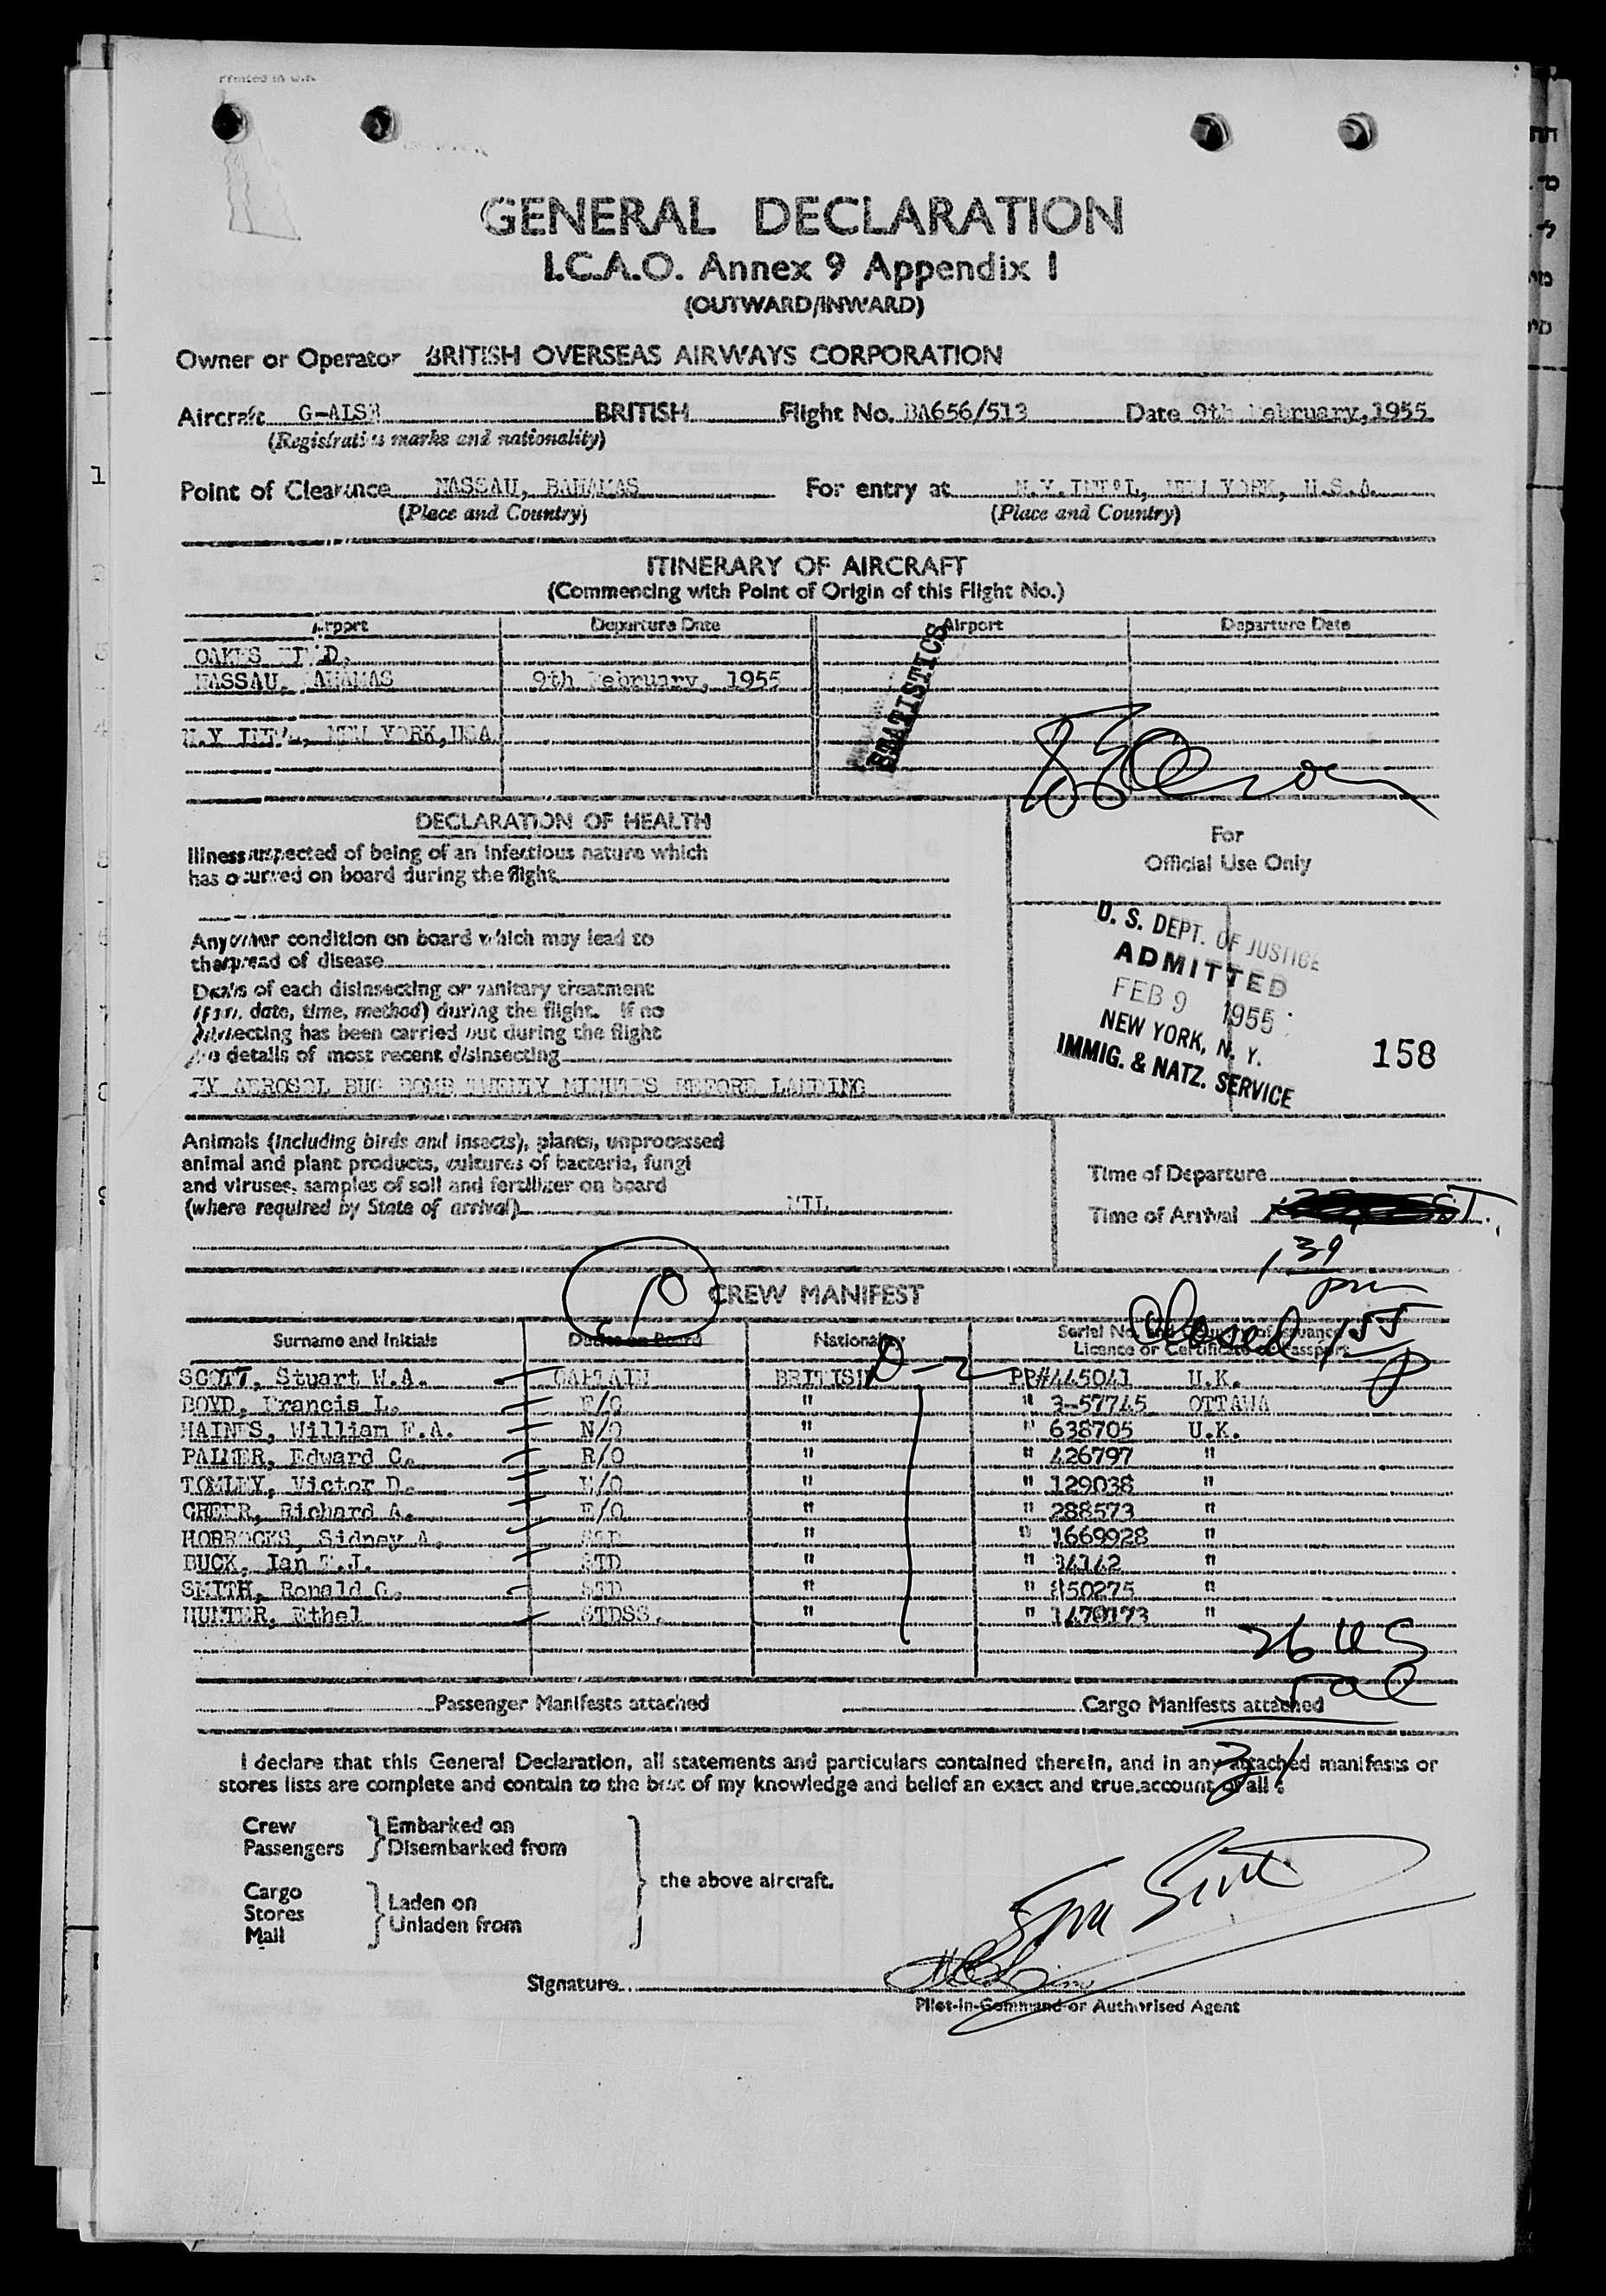 Printed in U.K.
GENERAL DECLARATION
I.C.A.O. Annex 9 Appendix I
(OUTWARD/INWARD)
Owner or Operator BRITISH OVERSEAS AIRWAYS CORPORATION
Aircraft G-AISB BRITISH Flight No. BA656/513 Date 9th February, 1955
(Registration marks and nationality)
Point of Clearance NASSAU, BAHAMAS For entry at N.Y. INT'L, NEW YORK, U.S.A.
(Place and Country) (Place and Country)
ITINERARY OF AIRCRAFT
(Commencing with Point of Origin of this Flight No.)
Airport Departure Date Airport Departure Date
OAKES FIELD,
NASSAU, BAHAMAS 9th February, 1955
STATISTICS
N.Y INT'L, NEW YORK, USA
DECLARATION OF HEALTH
For
Official Use Only
Illness suspected of being of an infectious nature which
has occurred on board during the flight
Any other condition on board which may lead to
the spread of disease
Details of each disinsecting or sanitary treatment
(Place, date, time, method) during the flight. If no
disinsecting has been carried out during the flight
give details of most recent disinsecting
BY AEROSOL BUG BOMB TWENTY MINUTES BEFORE LANDING
U. S. DEPT. OF JUSTICE
ADMITTED
FEB 9 1955
NEW YORK, N. Y.
IMMIG. & NATZ. SERVICE
158
Animals (including birds and insects), plants, unprocessed
animal and plant products, cultures of bacteria, fungi
and viruses, samples of soil and fertilizer on board
(where required by State of arrival) NIL
Time of Departure
Time of Arrival
139
pm
10
CREW MANIFEST
Closed 155
Surname and Initials Duties on Board Nationality Serial No. and Country of Issuance
Licence or Certificate or Passport
D-2
SCOTT, Stuart W.A. CAPTAIN BRITISH PP#445041 U.K.
BOYD, Francis L. F/O " " 3-57745 OTTAWA
HAINES, William F.A. N/O " " 638705 U.K.
PALMER, Edward C. R/O " " 426797 "
TOMLEY, Victor D. E/O " " 129038 "
GREER, Richard A. E/O " " 288573 "
HORROCKS, Sidney A. STD " " 1669928 "
BUCK, Ian T.J. STD " " 34142 "
SMITH, Ronald G. STD " " 850275 "
HUNTER, Ethel STDSS. " " 1479173 "
26 US
Passenger Manifests attached Cargo Manifests attached
31
I declare that this General Declaration, all statements and particulars contained therein, and in any attached manifests or
stores lists are complete and contain to the best of my knowledge and belief an exact and true account of all :
Crew Embarked on
Passengers Disembarked from
the above aircraft.
Cargo
Stores Laden on
Mail Unladen from
Signature
Pilot-in-Command or Authorised Agent